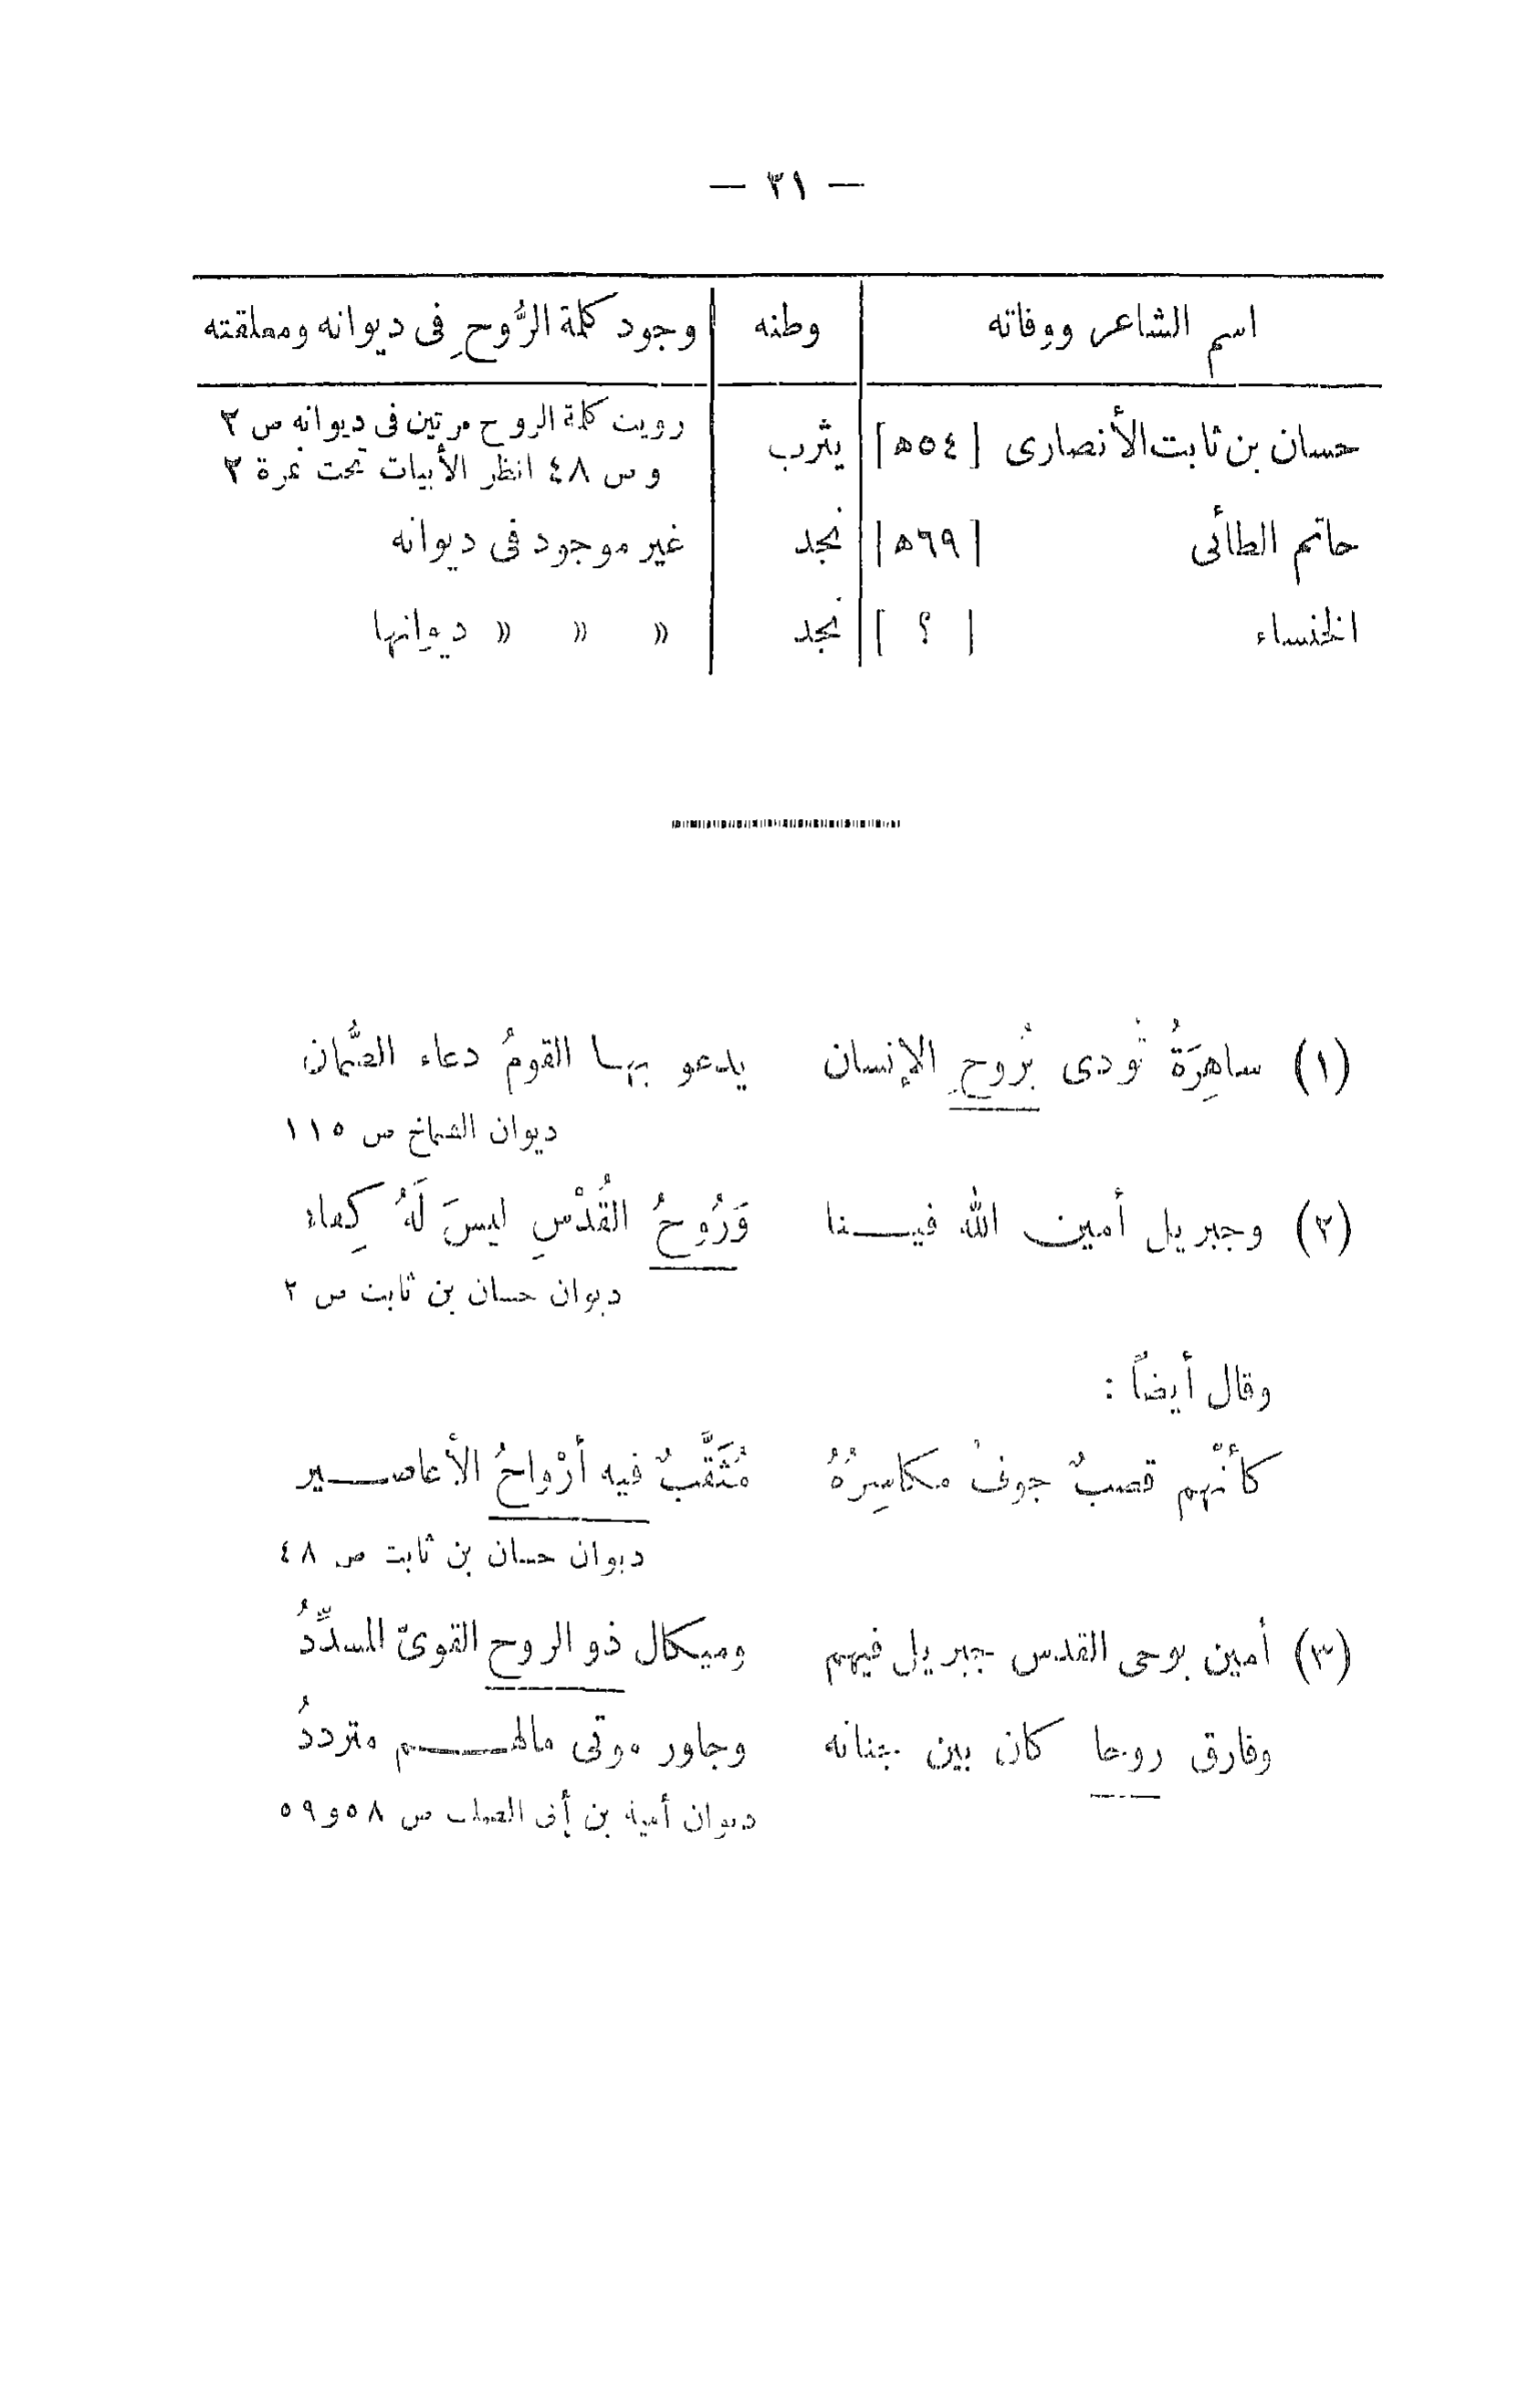 — ٣١ —
اسم الشاعر ووفاته وطنه وجود كلمة الرُّوحِ فى ديوانه ومعلقته
حسان بن ثابت الأنصارى [٥٤ه] يثرب رويت كلمة الروح مرتين فى ديوانه ص ٢
و ص ٤٨ انظر الأبيات تحت نمرة ٢
حاتم الطائى [٦٩ه] نجد غير موجود فى ديوانه
الخنساء [ ؟ ] نجد » » » ديوانها
(١) ساهِرَةُ تُودى بُروحِ الإنسان يدعو بها القومُ دعاء الصُّمان
ديوان الشماخ ص ١١٥
(٢) وجبريل أمين الله فينا وَرُوحُ القُدْسِ ليسَ لَهُ كِفاء
ديوان حسان بن ثابت ص ٢
وقال أيضاً :
كأنّهم قصبٌ جوفٌ مكاسِرُهُ مُثَقَّبٌ فيه أرْواحُ الأعاصير
ديوان حسان بن ثابت ص ٤٨
(٣) أمين بوحى القدس جبريل فيهم وميكال ذو الروح القوىّ المسدِّدُ
وفارق روحا كان بين جنانه وجاور موتى مالهم مترددُ
ديوان أمية بن أبى الصلت ص ٥٨ و ٥٩